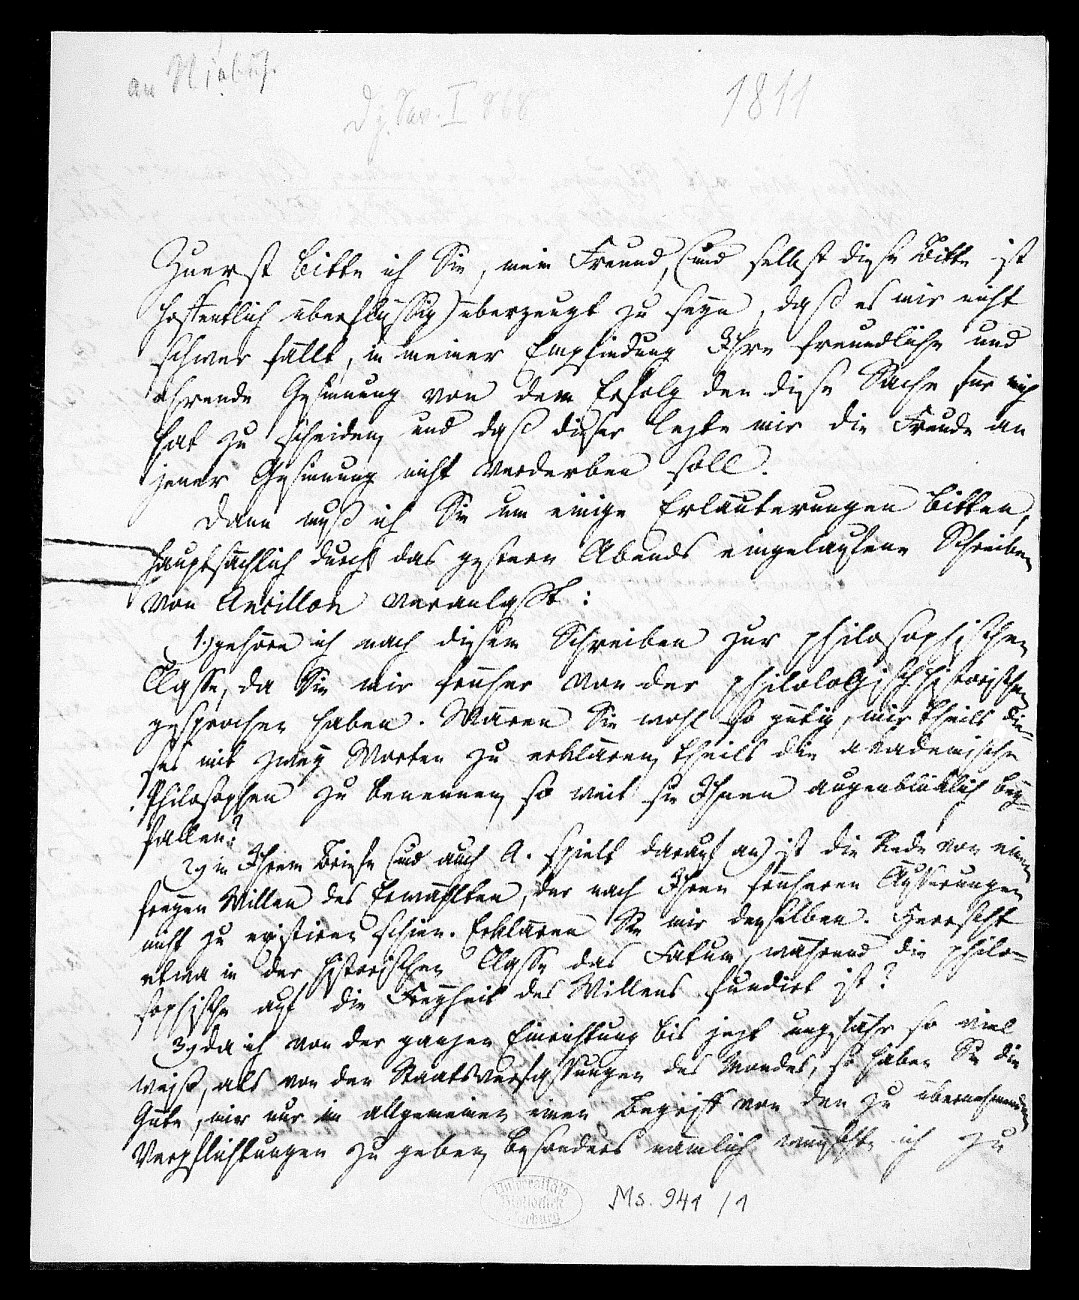 an Niebuhr.
1811
Zuerst bitte ich Sie, mein Freund, (und selbst diese Bitte ist
hoffentlich überflüssig) überzeugt zu seyn, daß es mir nicht
schwer fällt, in meiner Empfindung Ihre freundliche und
ehrende Gesinnung von dem Erfolg den diese Sache für mich
hat zu scheiden, und daß dieser lezte mir die Freude an
jener Gesinnung nicht verderben soll.
Dann muß ich Sie um einige Erläuterungen bitten,
hauptsächlich durch das gestern Abends eingelaufene Schreiben
von Ancillon veranlaßt:
1.) gehöre ich nach diesem Schreiben zur philosophischen
Classe, da Sie mir früher von der philologisch historischen
gesprochen haben. Wären Sie wohl so gütig, mir theils die-
ses mit zwey Worten zu erklären, theils die academische
Philosophen zu benennen, so weit sie Ihnen augenbliklich bey-
fallen?
2) in Ihrem Briefe (und auch A. spielt darauf an) ist die Rede von einem
freyen Willen des Erwählten, der nach Ihren früheren Äußerungen
nicht zu existiren schien. Erklären Sie mir denselben. Herrscht
etwa in der historischen Classe das Fatum, während die philo-
sophische auf die Freyheit des Willens fundirt ist?
3) da ich von der ganzen Einrichtung bis jezt ungefähr so viel
weiß, als von den Staatsverfassungen des Mondes, so haben Sie die
Güte, mir nur im allgemeinen einen Begriff von den zu übernehmenden
Verpflichtungen zu geben, besonders nämlich wünschte ich zu
Universitäts
Bibliothek
Marburg
Ms. 941 / 1